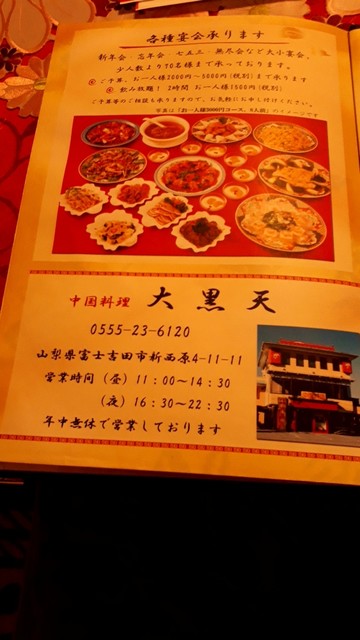 各種宴会承ります
新年会 忘年会 七五三 無尽会など大小宴会、
少人数より70名様まで承っております。
ご予算、お一人様2000円～5000円(税別)まで承ります
飲み放題！ 2時間 お一人様1500円(税別)
ご予算等のご相談も承りますので、お気軽にお申し付けください。
写真は「お一人様3000円コース、4人前」のイメージです
中国料理 大黒天
0555-23-6120
山梨県富士吉田市新西原4-11-11
営業時間 (昼) 11：00～14：30
(夜) 16：30～22：30
年中無休で営業しております